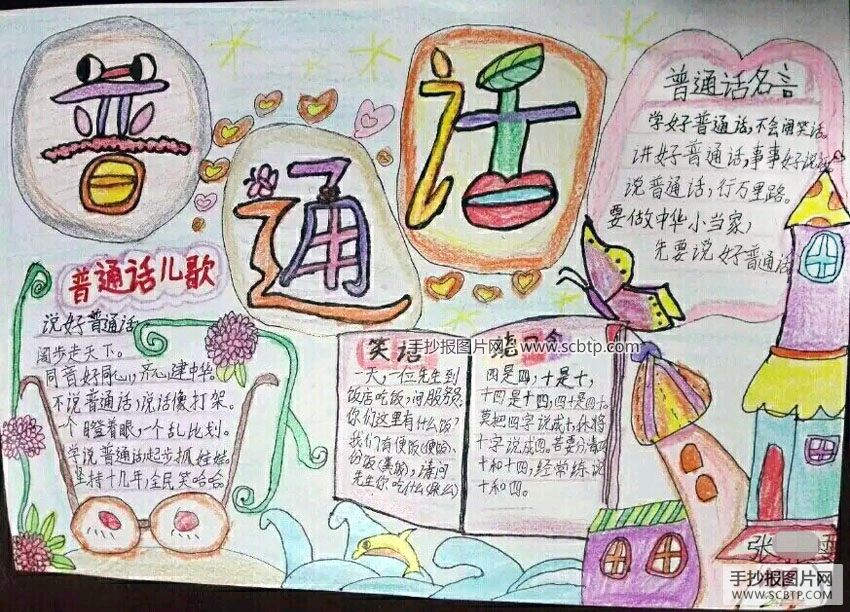 普通话
普通话名言
学好普通话,不会闹笑话。
讲好普通话,事事好说话
说普通话,行万里路。
要做中华小当家,
先要说好普通话
普通话儿歌
说好普通话
阔步走天下。
同音好同心,齐心建中华。
不说普通话,说话像打架。
一个瞪着眼,一个乱比划。
学说普通话起步抓娃娃。
坚持十几年,全民笑哈哈。
笑话
一天,一位先生到
饭店吃饭,问服务员:
你们这里有什么饭?
我们有便饭(便饭)、
份饭(粪饭),请问
先生你吃什么
绕口令
四是四,十是十,
十四是十四,四十是四十。
莫把四字说成十,休将
十字说成四。若要分清四
十和十四,经常练说
十和四。
手抄报图片网 www.scbtp.com
张
手抄报图片网
WWW.SCBTP.COM